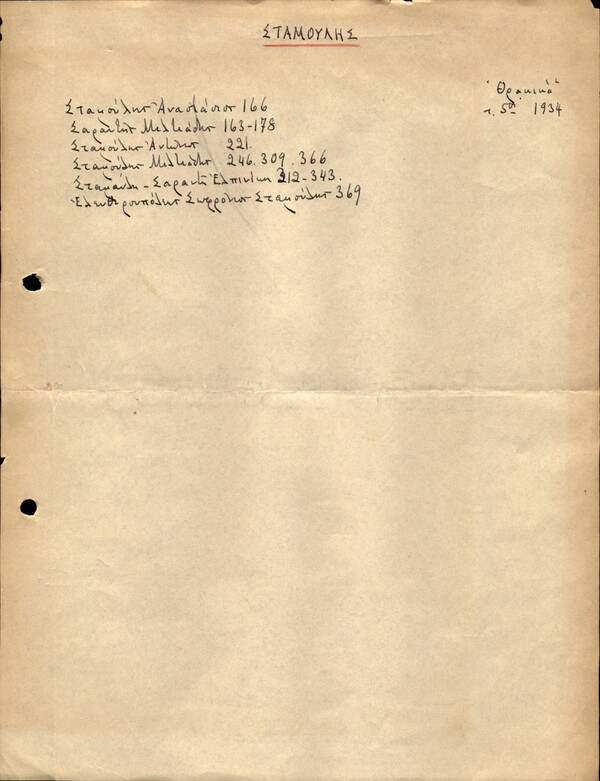 ΣΤΑΜΟΥΛΗΣ
"Θρακικά"
τ. 5ος 1934
Σταμούλης Αναστάσιος 166
Σαράντης Μιλτιάδης 163-178
Σταμούλης Αντώνης 221.
Σταμούλης Μιλτιάδης 246. 309. 366
Σταμούλη - Σαραντή Ελπινίκη 212-343.
Ελευθερουπόλεως Σωφρόνιος Σταμούλης 369